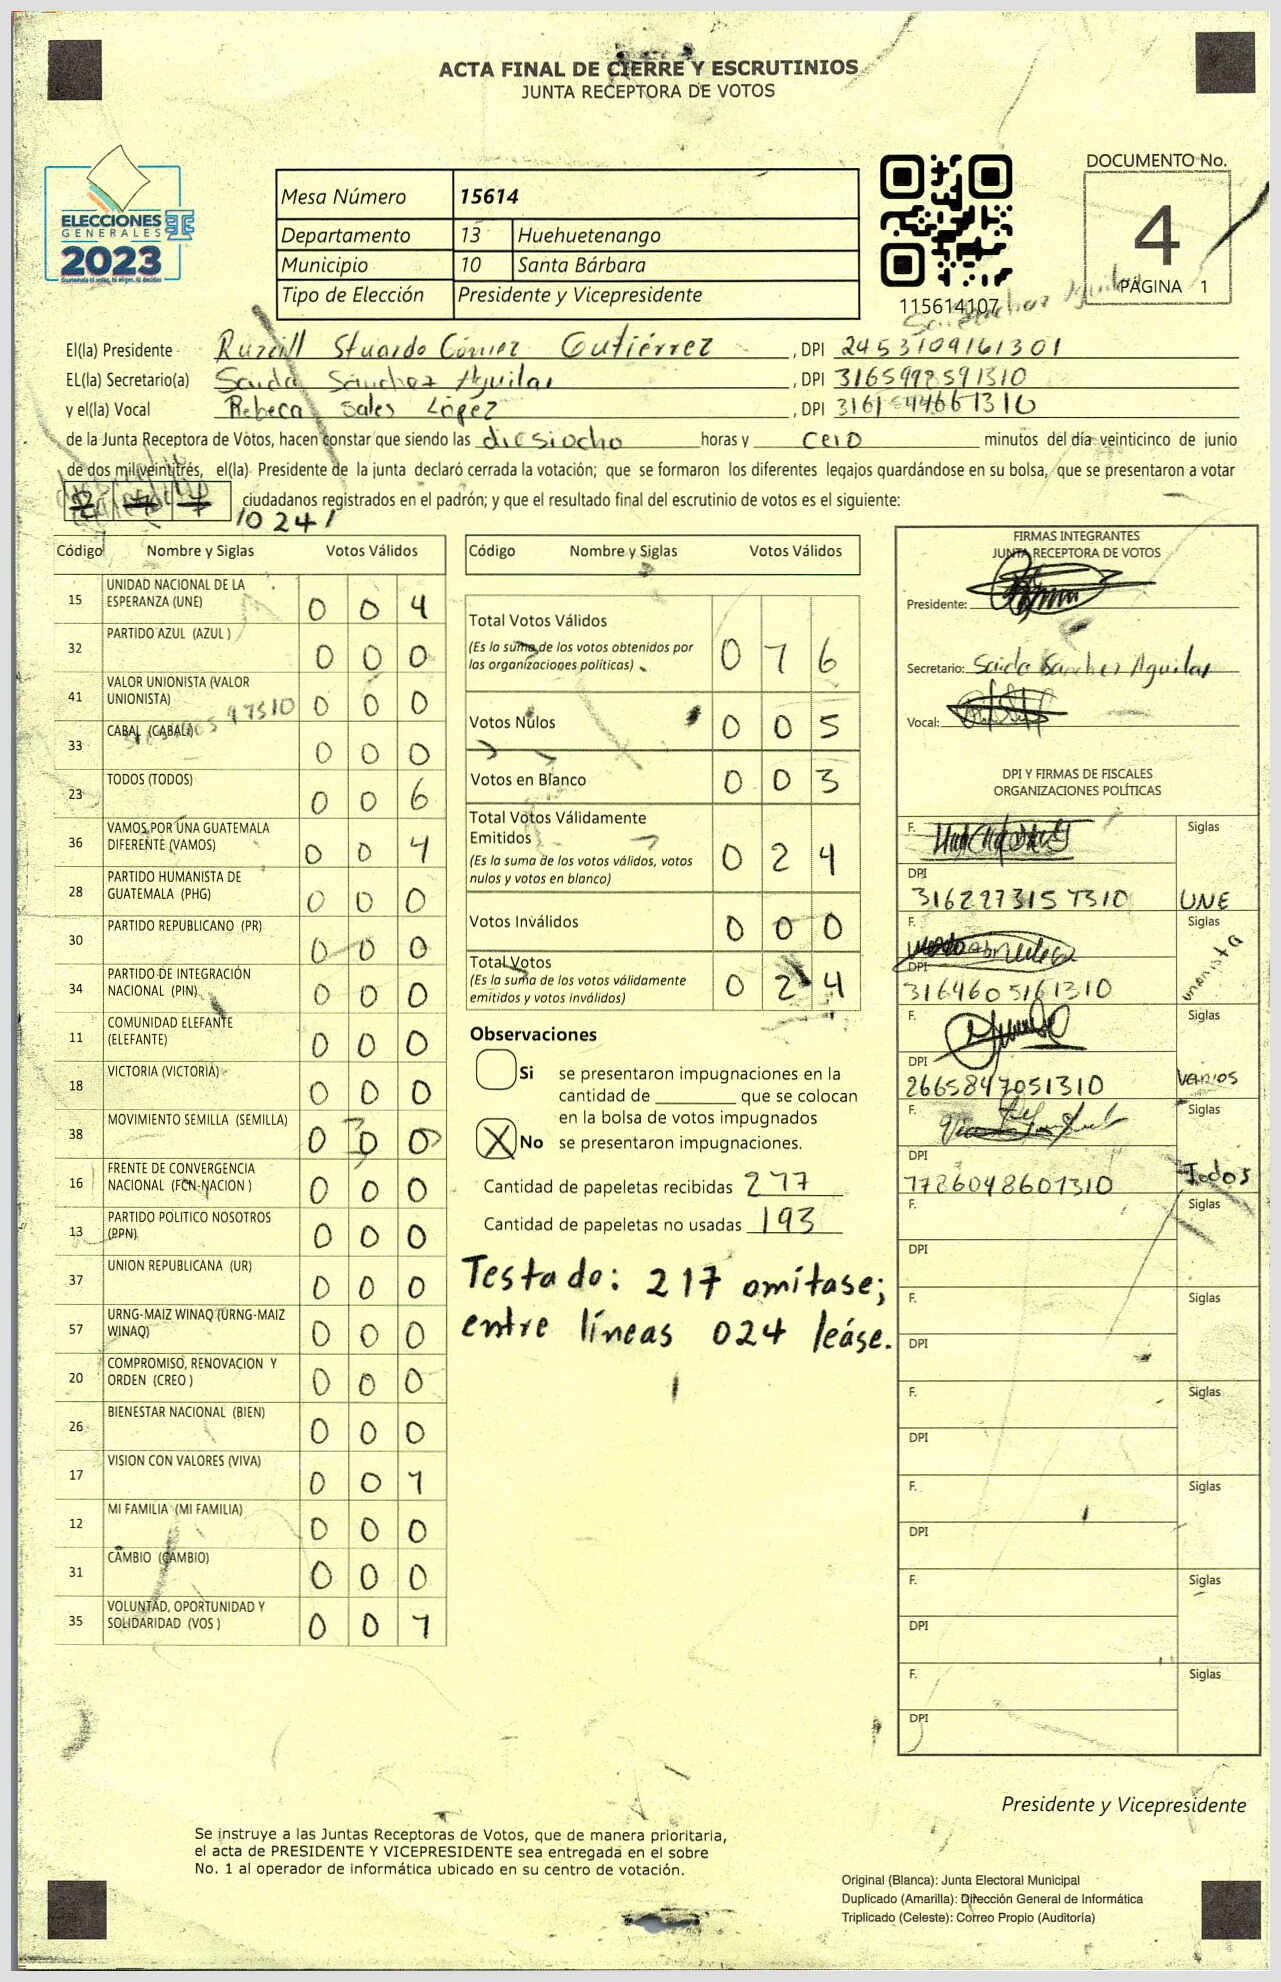 ACTA FINAL DE CIERRE Y ESCRUTINIOS
JUNTA RECEPTORA DE VOTOS
ELECCIONES
GENERALES
2023
Mesa Número 15614
Departamento 13 Huehuetenango
Municipio 10 Santa Bárbara
Tipo de Elección Presidente y Vicepresidente
115614107
DOCUMENTO No.
4
PÁGINA 1
El(la) Presidente Stuardo Gómez Gutiérrez , DPI 2453109161301
EL(la) Secretario(a) Saida Sánchez Aguilar , DPI 3165998591310
y el(la) Vocal Rebeca Sales López , DPI
de la Junta Receptora de Votos, hacen constar que siendo las diesiocho horas y cero minutos del día veinticinco de junio
de dos mil veintitrés, el(la) Presidente de la junta declaró cerrada la votación; que se formaron los diferentes legajos quardándose en su bolsa, que se presentaron a votar
ciudadanos registrados en el padrón; y que el resultado final del escrutinio de votos es el siguiente:
10241
Código Nombre y Siglas Votos Válidos
15 UNIDAD NACIONAL DE LA ESPERANZA (UNE) 0 0 4
32 PARTIDO AZUL (AZUL ) 0 0 0
41 VALOR UNIONISTA (VALOR UNIONISTA) 0 0 0
33 CABAL (CABAL) 0 0 0
23 TODOS (TODOS) 0 0 6
36 VAMOS POR UNA GUATEMALA DIFERENTE (VAMOS) 0 0 4
28 PARTIDO HUMANISTA DE GUATEMALA (PHG) 0 0 0
30 PARTIDO REPUBLICANO (PR) 0 0 0
34 PARTIDO DE INTEGRACIÓN NACIONAL (PIN) 0 0 0
11 COMUNIDAD ELEFANTE (ELEFANTE) 0 0 0
18 VICTORIA (VICTORIA) 0 0 0
38 MOVIMIENTO SEMILLA (SEMILLA) 0 0 0
16 FRENTE DE CONVERGENCIA NACIONAL (FCN-NACION ) 0 0 0
13 PARTIDO POLITICO NOSOTROS (PPN) 0 0 0
37 UNION REPUBLICANA (UR) 0 0 0
57 URNG-MAIZ WINAQ (URNG-MAIZ WINAQ) 0 0 0
20 COMPROMISO, RENOVACION Y ORDEN (CREO ) 0 0 0
26 BIENESTAR NACIONAL (BIEN) 0 0 0
17 VISION CON VALORES (VIVA) 0 0 1
12 MI FAMILIA (MI FAMILIA) 0 0 0
31 CAMBIO (CAMBIO) 0 0 0
35 VOLUNTAD, OPORTUNIDAD Y SOLIDARIDAD (VOS ) 0 0 1
Código Nombre y Siglas Votos Válidos
Total Votos Válidos
(Es la suma de los votos obtenidos por
las organizaciones políticas) 0 1 6
Votos Nulos 0 0 5
Votos en Blanco 0 0 3
Total Votos Válidamente
Emitidos
(Es la suma de los votos válidos, votos
nulos y votos en blanco) 0 2 4
Votos Inválidos 0 0 0
Total Votos
(Es la suma de los votos válidamente
emitidos y votos inválidos) 0 2 4
Observaciones
Si se presentaron impugnaciones en la
cantidad de ________ que se colocan
en la bolsa de votos impugnados
X No se presentaron impugnaciones.
Cantidad de papeletas recibidas 217
Cantidad de papeletas no usadas 193
Testado: 217 omítase;
entre líneas 024 leáse.
FIRMAS INTEGRANTES
JUNTA RECEPTORA DE VOTOS
Presidente:
Secretario: Saida Sánchez Aguilar
Vocal:
DPI Y FIRMAS DE FISCALES
ORGANIZACIONES POLÍTICAS
F. Siglas
DPI
3162973151310 UNE
F. Siglas
DPI
3164605161310 unionista
F. Siglas
DPI
2665847051310
F. Siglas
DPI
1786048601310 Todos
F. Siglas
DPI
F. Siglas
DPI
F. Siglas
DPI
F. Siglas
DPI
F. Siglas
DPI
F. Siglas
DPI
Presidente y Vicepresidente
Se instruye a las Juntas Receptoras de Votos, que de manera prioritaria,
el acta de PRESIDENTE Y VICEPRESIDENTE sea entregada en el sobre
No. 1 al operador de informática ubicado en su centro de votación.
Original (Blanca): Junta Electoral Municipal
Duplicado (Amarilla): Dirección General de Informática
Triplicado (Celeste): Correo Propio (Auditoría)